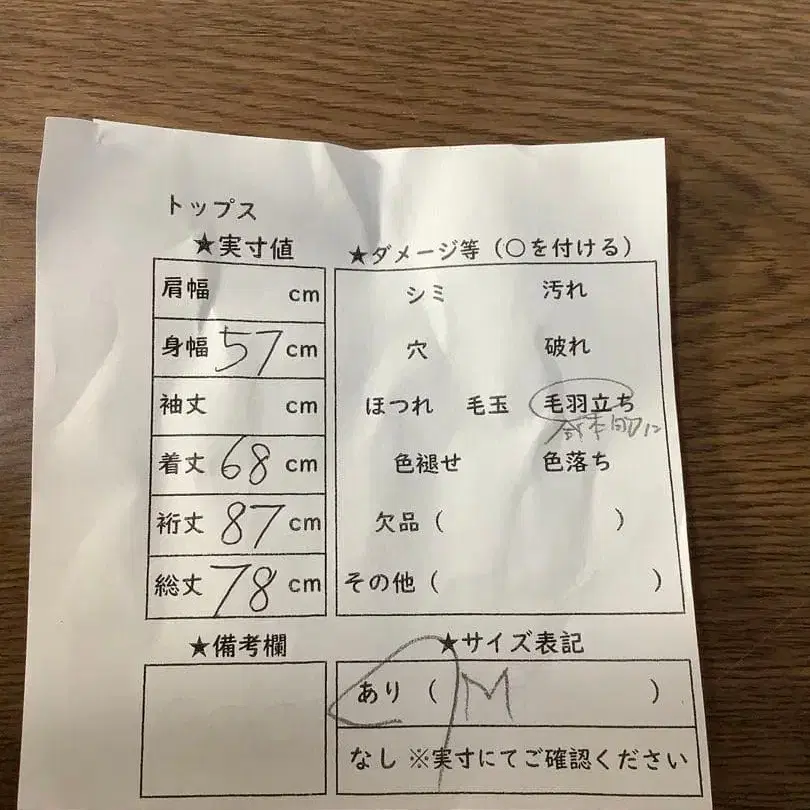 トップス
★実寸値
肩幅 cm
身幅 57 cm
袖丈 cm
着丈 68 cm
裄丈 87 cm
総丈 78 cm
★ダメージ等（〇を付ける）
シミ 汚れ
穴 破れ
ほつれ 毛玉 毛羽立ち
全体的に
色褪せ 色落ち
欠品（ ）
その他（ ）
★備考欄
★サイズ表記
あり（ M ）
なし ※実寸にてご確認ください